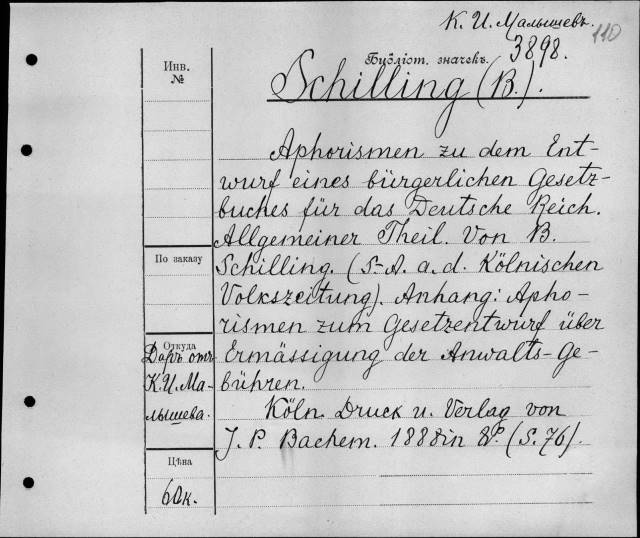 К. И. Малышевъ.
110
Библіот. значекъ. 3898.
Инв.
№
Schilling (B.).
Aphorismen zu dem Ent-
wurf eines bürgerlichen Gesetz-
buches für das Deutsche Reich.
Allgemeiner Theil. Von B.
Schilling. (S.-A. a. d. Kölnischen
Volkszeitung). Anhang: Apho-
rismen zum Gesetzentwurf über
Ermässigung der Anwalts-Ge-
bühren.
Köln. Druck u. Verlag von
J. P. Bachem. 1888 in 8º. (S. 76).
По заказу
Откуда
Даръ отъ
К. И. Ма-
лышева.
Цѣна
60к.